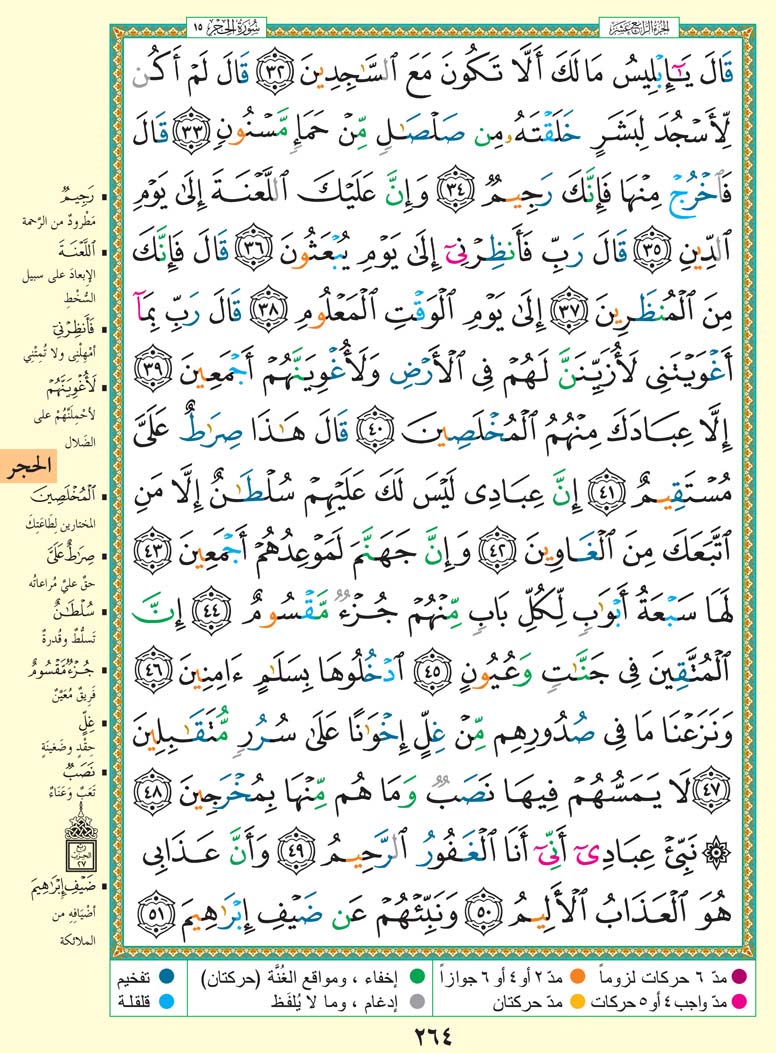 الجزء الرابع عشر
سُورَةُ الحِجْر ١٥
قَالَ يَـٰٓإِبْلِيسُ مَا لَكَ أَلَّا تَكُونَ مَعَ ٱلسَّـٰجِدِينَ ٣٢ قَالَ لَمْ أَكُن
لِّأَسْجُدَ لِبَشَرٍ خَلَقْتَهُۥ مِن صَلْصَـٰلٍ مِّنْ حَمَإٍ مَّسْنُونٍ ٣٣ قَالَ
فَٱخْرُجْ مِنْهَا فَإِنَّكَ رَجِيمٌ ٣٤ وَإِنَّ عَلَيْكَ ٱللَّعْنَةَ إِلَىٰ يَوْمِ
ٱلدِّينِ ٣٥ قَالَ رَبِّ فَأَنظِرْنِىٓ إِلَىٰ يَوْمِ يُبْعَثُونَ ٣٦ قَالَ فَإِنَّكَ
مِنَ ٱلْمُنظَرِينَ ٣٧ إِلَىٰ يَوْمِ ٱلْوَقْتِ ٱلْمَعْلُومِ ٣٨ قَالَ رَبِّ بِمَآ
أَغْوَيْتَنِى لَأُزَيِّنَنَّ لَهُمْ فِى ٱلْأَرْضِ وَلَأُغْوِيَنَّهُمْ أَجْمَعِينَ ٣٩
إِلَّا عِبَادَكَ مِنْهُمُ ٱلْمُخْلَصِينَ ٤٠ قَالَ هَـٰذَا صِرَٰطٌ عَلَىَّ
مُسْتَقِيمٌ ٤١ إِنَّ عِبَادِى لَيْسَ لَكَ عَلَيْهِمْ سُلْطَـٰنٌ إِلَّا مَنِ
ٱتَّبَعَكَ مِنَ ٱلْغَاوِينَ ٤٢ وَإِنَّ جَهَنَّمَ لَمَوْعِدُهُمْ أَجْمَعِينَ ٤٣
لَهَا سَبْعَةُ أَبْوَٰبٍ لِّكُلِّ بَابٍ مِّنْهُمْ جُزْءٌ مَّقْسُومٌ ٤٤ إِنَّ
ٱلْمُتَّقِينَ فِى جَنَّـٰتٍ وَعُيُونٍ ٤٥ ٱدْخُلُوهَا بِسَلَـٰمٍ ءَامِنِينَ ٤٦
وَنَزَعْنَا مَا فِى صُدُورِهِم مِّنْ غِلٍّ إِخْوَٰنًا عَلَىٰ سُرُرٍ مُّتَقَـٰبِلِينَ
٤٧ لَا يَمَسُّهُمْ فِيهَا نَصَبٌ وَمَا هُم مِّنْهَا بِمُخْرَجِينَ ٤٨
۞ نَبِّئْ عِبَادِىٓ أَنِّىٓ أَنَا ٱلْغَفُورُ ٱلرَّحِيمُ ٤٩ وَأَنَّ عَذَابِى
هُوَ ٱلْعَذَابُ ٱلْأَلِيمُ ٥٠ وَنَبِّئْهُمْ عَن ضَيْفِ إِبْرَٰهِيمَ ٥١
رَجِيمٌ
مَطْرودٌ من الرَّحمة
ٱللَّعْنَةَ
الإبعادَ على سبيل
السُّخْطِ
فَأَنظِرْنِىٓ
أَمْهِلْنِي ولا تُمِتْنِي
لَأُغْوِيَنَّهُمْ
لأحْمِلَنَّهُمْ على
الضّلال
الحجر
ٱلْمُخْلَصِينَ
المختارين لِطَاعَتِكَ
صِرَٰطٌ عَلَىَّ
حقٌّ عليَّ مُراعاتُه
سُلْطَـٰنٌ
تَسلُّطٌ وقُدرةٌ
جُزْءٌ مَّقْسُومٌ
فَرِيقٌ مُعَيَّنٌ
غِلٍّ
حِقْدٍ وضَغينَةٍ
نَصَبٌ
تَعَبٌ وَعَنَاءٌ
ربع
الحزب
٢٧
ضَيْفِ إِبْرَٰهِيمَ
أضْيَافِهِ من
الملائكة
مدّ ٦ حركات لزوماً
مدّ ٢ أو ٤ أو ٦ جوازاً
إخفاء ، ومواقع الغُنَّة (حركتان)
تفخيم
مدّ واجب ٤ أو ٥ حركات
مدّ حركتان
إدغام ، وما لا يُلفَظ
قلقلة
٢٦٤